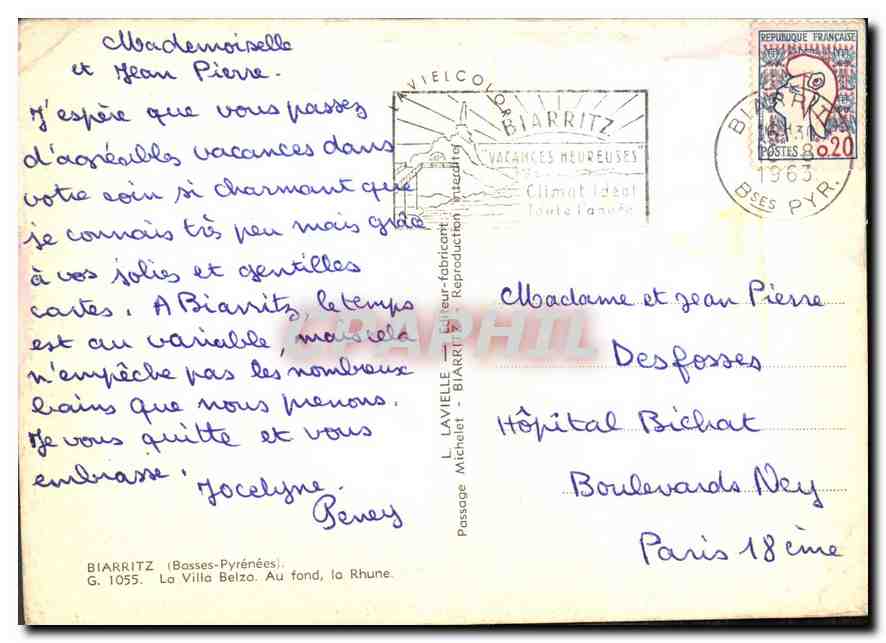 Mademoiselle
et Jean Pierre.
J'espère que vous passez
d'agréables vacances dans
votre coin si charmant que
je connais très peu mais grâce
à vos jolies et gentilles
cartes. A Biarritz, le temps
est au variable, mais cela
n'empêche pas les nombreux
bains que nous prenons.
Je vous quitte et vous
embrasse.
Jocelyne.
Peney
BIARRITZ (Basses-Pyrénées).
G. 1055. La Villa Belza. Au fond, la Rhune.
LAVIELCOLOR
L. LAVIELLE — Editeur-fabricant
Passage Michelet - BIARRITZ - Reproduction interdite
BIARRITZ
"VACANCES HEUREUSES"
Climat Idéal
Toute l'année
REPUBLIQUE FRANÇAISE
POSTES 0,20
BIARRITZ
1963
BSES PYR.
Madame et Jean Pierre
Desfosses
Hôpital Bichat
Boulevards Ney
Paris 18 ème
CPAPHIL